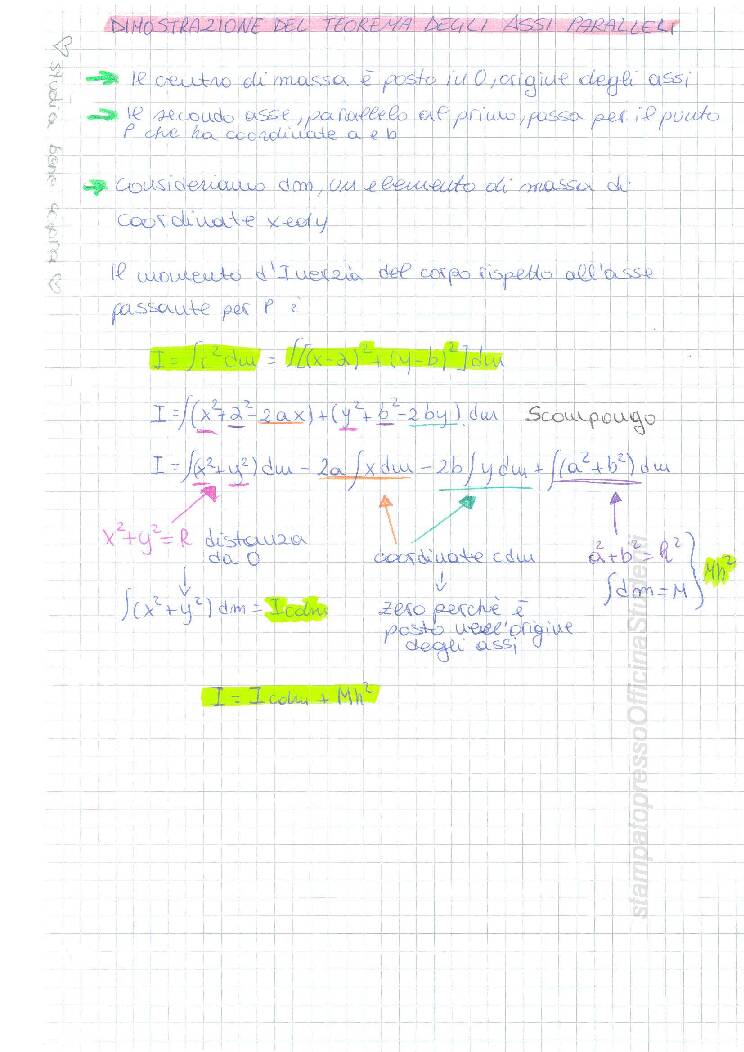 DIMOSTRAZIONE DEL TEOREMA DEGLI ASSI PARALLELI
♡ studia bene sopra ♡
→ Il centro di massa è posto in O, origine degli assi
→ Il secondo asse, parallelo al primo, passa per il punto
P che ha coordinate a e b
→ Consideriamo dm, un elemento di massa di
coordinate x e dy
Il momento d'Inerzia del corpo rispetto all'asse
passante per P è
I = ∫r² dm = ∫[(x-a)² + (y-b)²] dm
I = ∫(x²+a²-2ax)+(y²+b²-2by) dm Scompongo
I = ∫(x²+y²) dm - 2a∫x dm - 2b∫y dm + ∫(a²+b²) dm
x²+y² = R distanza
da O
coordinate cdm
a²+b² = h²
∫dm = M
} Mh²
∫(x²+y²) dm = Icdm
zero perchè è
posto nell'origine
degli assi
I = Icdm + Mh²
stampatopressoOfficinaStudenti